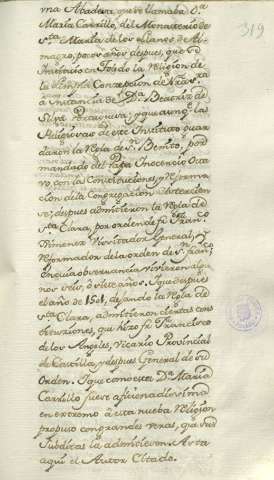 319
una Abadesa, que se llamaba D.ª
María Carrillo, del Monasterio de
S.ta María de los Llanos de Al-
magro, pocos años despues, que se
instituyó en Toledo la Religion de
la Concepcion de Nra S.ra
à instancia de D.ª Beatriz de
Silva Portuguesa; y que aunq. las
Religiosas de este Instituto guar
daron la Regla de S.n Benito, por
mandado del Papa Inocencio Octa
vo, con las Constituciones, y Reforma
cion de la Congregacion Cisterciense
; despues admitieron la Regla de
Santa Clara, por orden de fr. Fran.co
Ximenez Visitador General, y
Reformador de la orden de S.n Fran.co
en cuia observancia vivieron algu
nos seis, ò siete años. I que despues
el año de 1501, dejando la Regla de
S.ta Clara, admitieron ciertas cons
tituciones, que hizo fr. Francisco
de los Angeles, Vicario Provincial
de Castilla, y despues General de su
Orden. I que como esta D.ª María
Carrillo fuese aficionadisima
en extremo à esta nueba Religion
propuso con grandes veras, q sus
Subditas la admitiesen. Asta
aqui el Autor Citado.